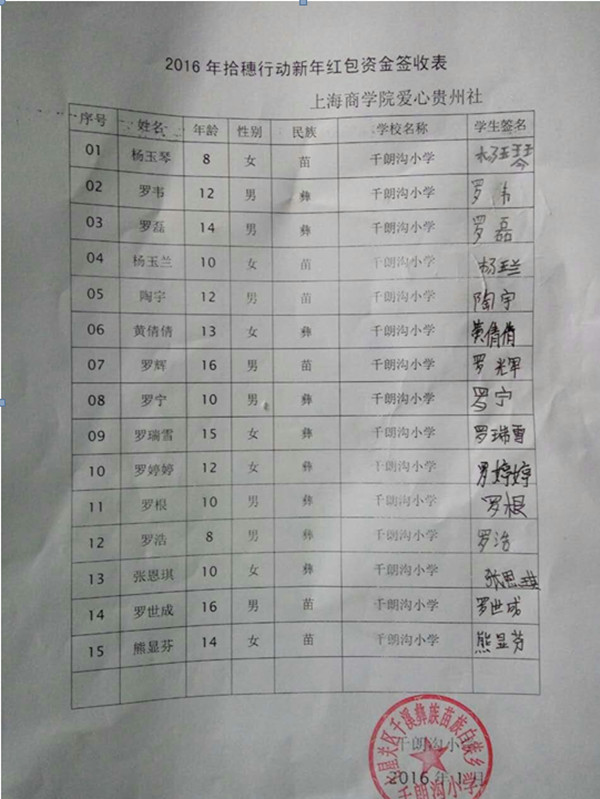 2016年拾穗行动新年红包资金签收表
上海商学院爱心贵州社
序号 姓名 年龄 性别 民族 学校名称 学生签名
01 杨玉琴 8 女 苗 千朗沟小学 杨玉琴
02 罗韦 12 男 彝 千朗沟小学 罗韦
03 罗磊 14 男 彝 千朗沟小学 罗磊
04 杨玉兰 10 女 苗 千朗沟小学 杨玉兰
05 陶宇 12 男 苗 千朗沟小学 陶宇
06 黄倩倩 13 女 彝 千朗沟小学 黄倩倩
07 罗辉 16 男 苗 千朗沟小学 罗辉
08 罗宁 10 男 彝 千朗沟小学 罗宁
09 罗瑞雪 15 女 彝 千朗沟小学 罗瑞雪
10 罗婷婷 12 女 彝 千朗沟小学 罗婷婷
11 罗根 10 男 彝 千朗沟小学 罗根
12 罗浩 8 男 彝 千朗沟小学 罗浩
13 张恩琪 10 女 彝 千朗沟小学 张恩琪
14 罗世成 16 男 苗 千朗沟小学 罗世成
15 熊显芬 14 女 苗 千朗沟小学 熊显芬
星关区千溪彝族苗族白族乡
千朗沟小
2016年1 日
千朗沟小学